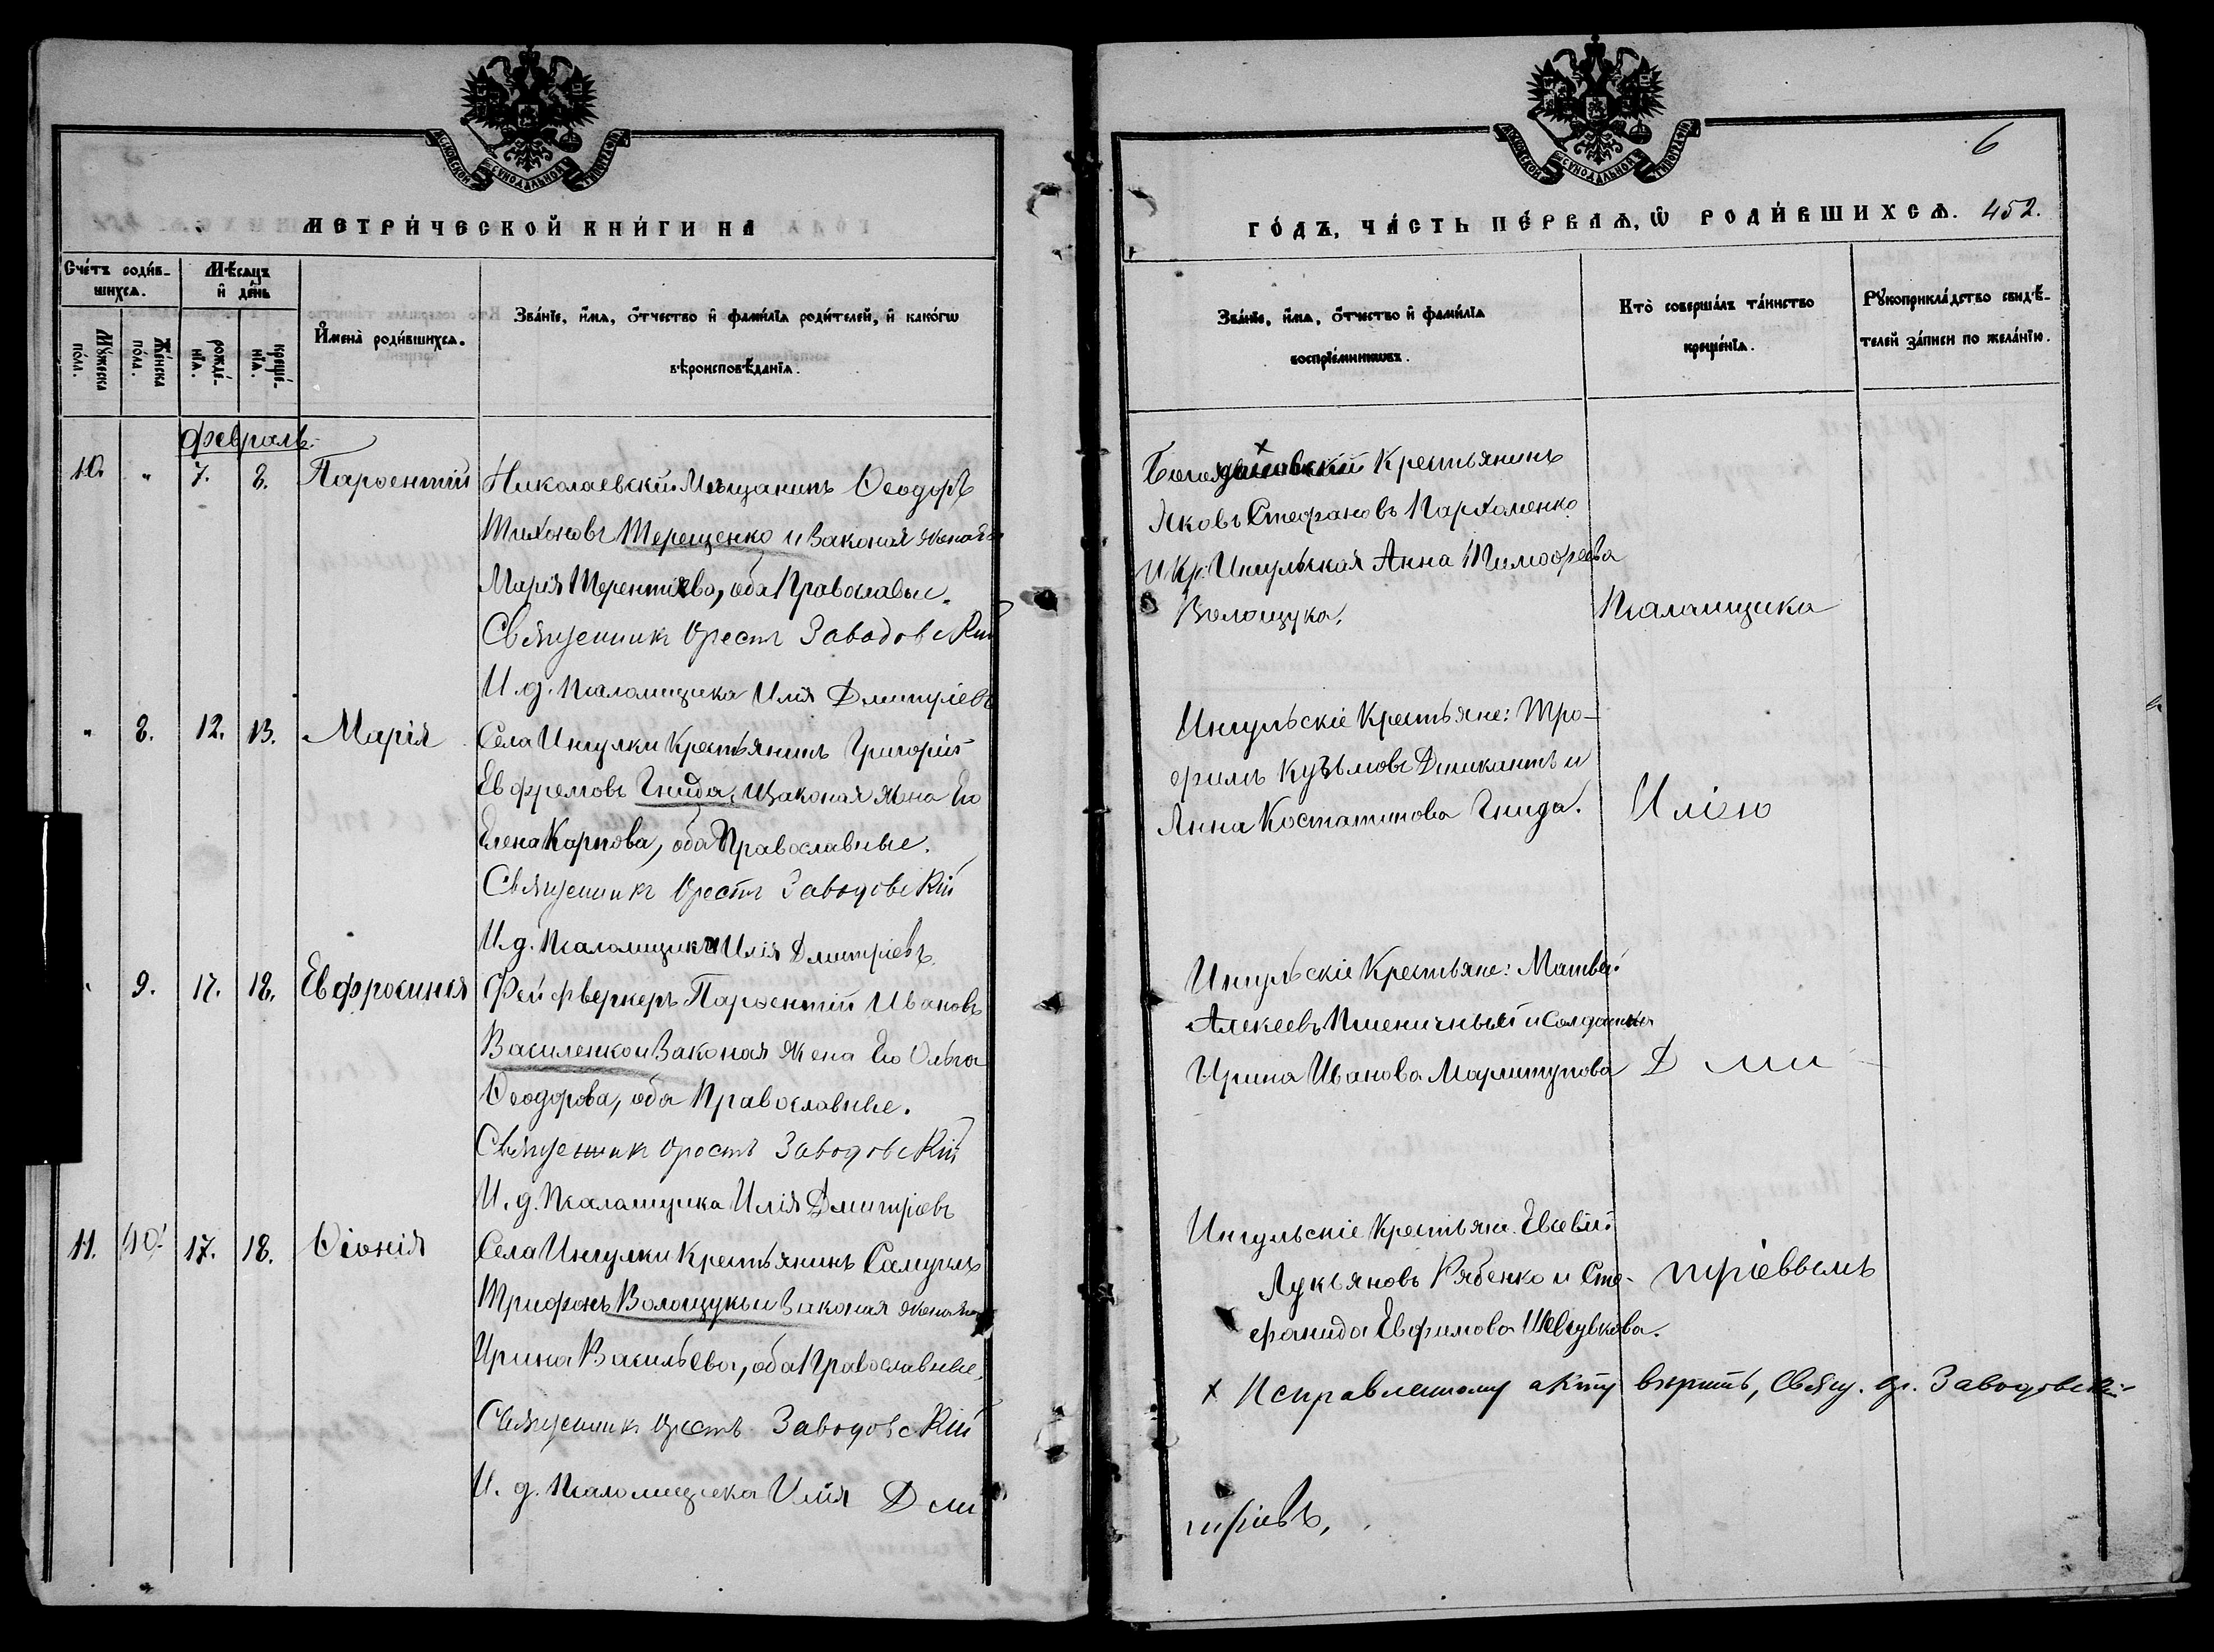 МОСКОВСКОЙ СѴНОДАЛЬНОЙ ТИПОГРАФІИ
МЕТРИ́ЧЕСКОЙ КНИ́ГИ НА
Сче́тъ роди́в-
шихсѧ.
Мѣ́сѧцъ
и҆ де́нь
Мꙋ́жеска
по́ла.
Же́нска
по́ла.
рожде́-
нїѧ.
креще́-
нїѧ.
И҆мена̀ роди́вшихсѧ.
Зва́нїе, и҆́мѧ, ѻ҆́тчество и҆ фами́лїѧ роди́телей, и҆ како́гѡ
вѣроисповѣ́данїѧ.
февраль.
10. " 7. 8. Парѳентій
Николаевскій Мѣщанинъ Ѳеодоръ
Тихоновъ Терещенко и Законая жена его
Марія Терентіева, оба Православн.
Священникъ Орестъ Заводовскій
И. д. Псаломщика Илія Дмитріевъ
" 8. 12. 13. Марія
Села Ингулки Крестьянинъ Григорій
Евфремовъ Гнида, и Законая жена Его
Елена Карпова, оба Православные.
Священникъ Орестъ Заводовскій
И. д. Псаломщика Илія Дмитріевъ
9. 17. 18. Евфросинія
Фейерверкеръ Парѳентій Ивановъ
Василенко и Законая жена Его Ольга
Ѳеодорова, оба Православные.
Священникъ Орестъ Заводовскій
И. д. Псаломщика Илія Дмитріевъ
11. 10. 17. 18. Ѳіонія
Села Ингулки Крестьянинъ Самуилъ
Трифонъ Волощукъ и Законая жена его
Ирина Васильева, оба Православные,
Священникъ Орестъ Заводовскій
И. д. Псаломщика Илія Дми
МОСКОВСКОЙ СѴНОДАЛЬНОЙ ТИПОГРАФІИ
6
ГО́ДЪ, ЧА́СТЬ ПЕ́РВАѦ, Ѡ҆ РОДИ́ВШИХСѦ. 452.
Зва́нїе, и҆́мѧ, ѻ҆́тчество и҆ фами́лїѧ
воспрїе́мникѡвъ.
Кто̀ соверша́лъ та́инство
креще́нїѧ.
Рꙋкоприкла́дство свидѣ́-
телей за́писи по жела́нїю.
Крестьянинъ
Яковъ Стефановъ Пархоменко
и Кр. Ингульская Анна Тимофеева
Волощука.
Псаломщика
Ингульскіе Крестьяне: Тро-
фимъ Кузьмовъ Дишкантъ и
Анна Костатинова Гнида.
Иліею
Ингульскіе Крестьяне: Матвей
Алексеевъ Пшеничный и Солдатка
Ирина Иванова Мартынова
Дми
Ингульскіе Крестьяне. Евсевій
Лукьяновъ Рябенко и Сте-
фанида Евфимова Шевчукова.
тріевымъ
х Исправленному акту вѣрить, Свящ. Ор. Заводовскій
тріевъ,